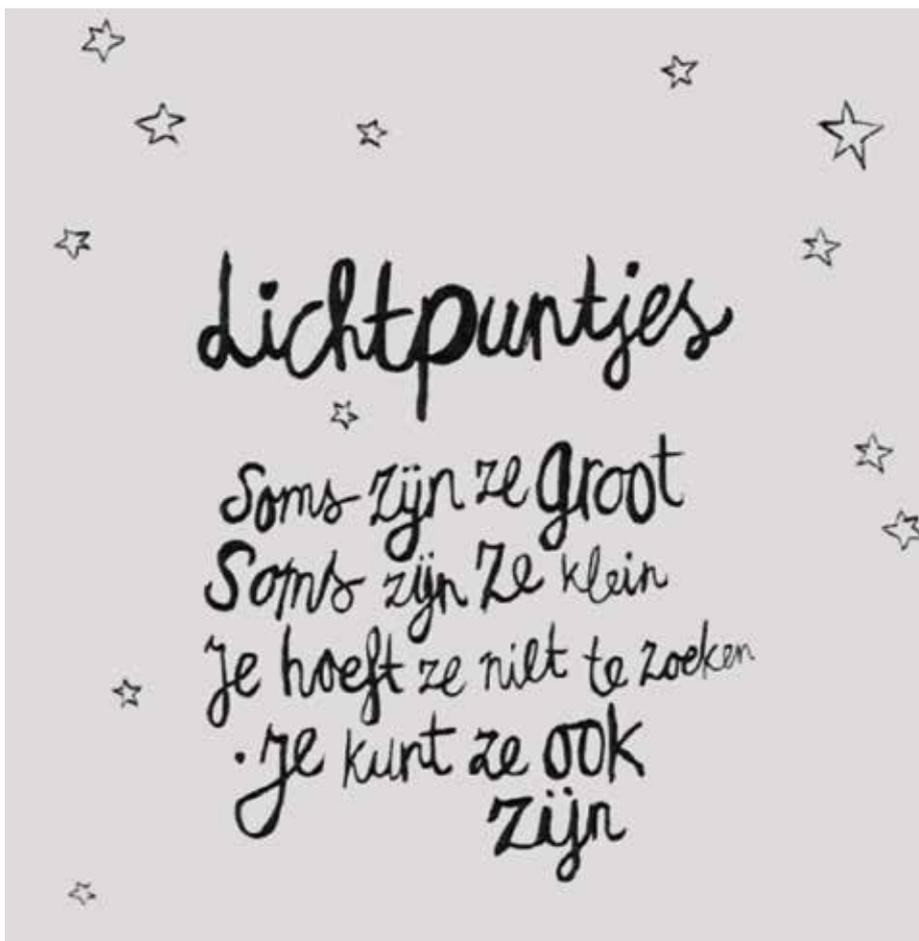 Lichtpuntjes
Soms zijn ze groot
Soms zijn ze klein
Je hoeft ze niet te zoeken
• Je kunt ze ook
zijn